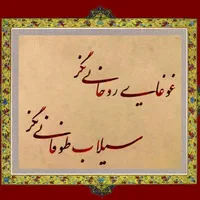 غوغایی روحانی نگر
سیلاب طوفانی نگر